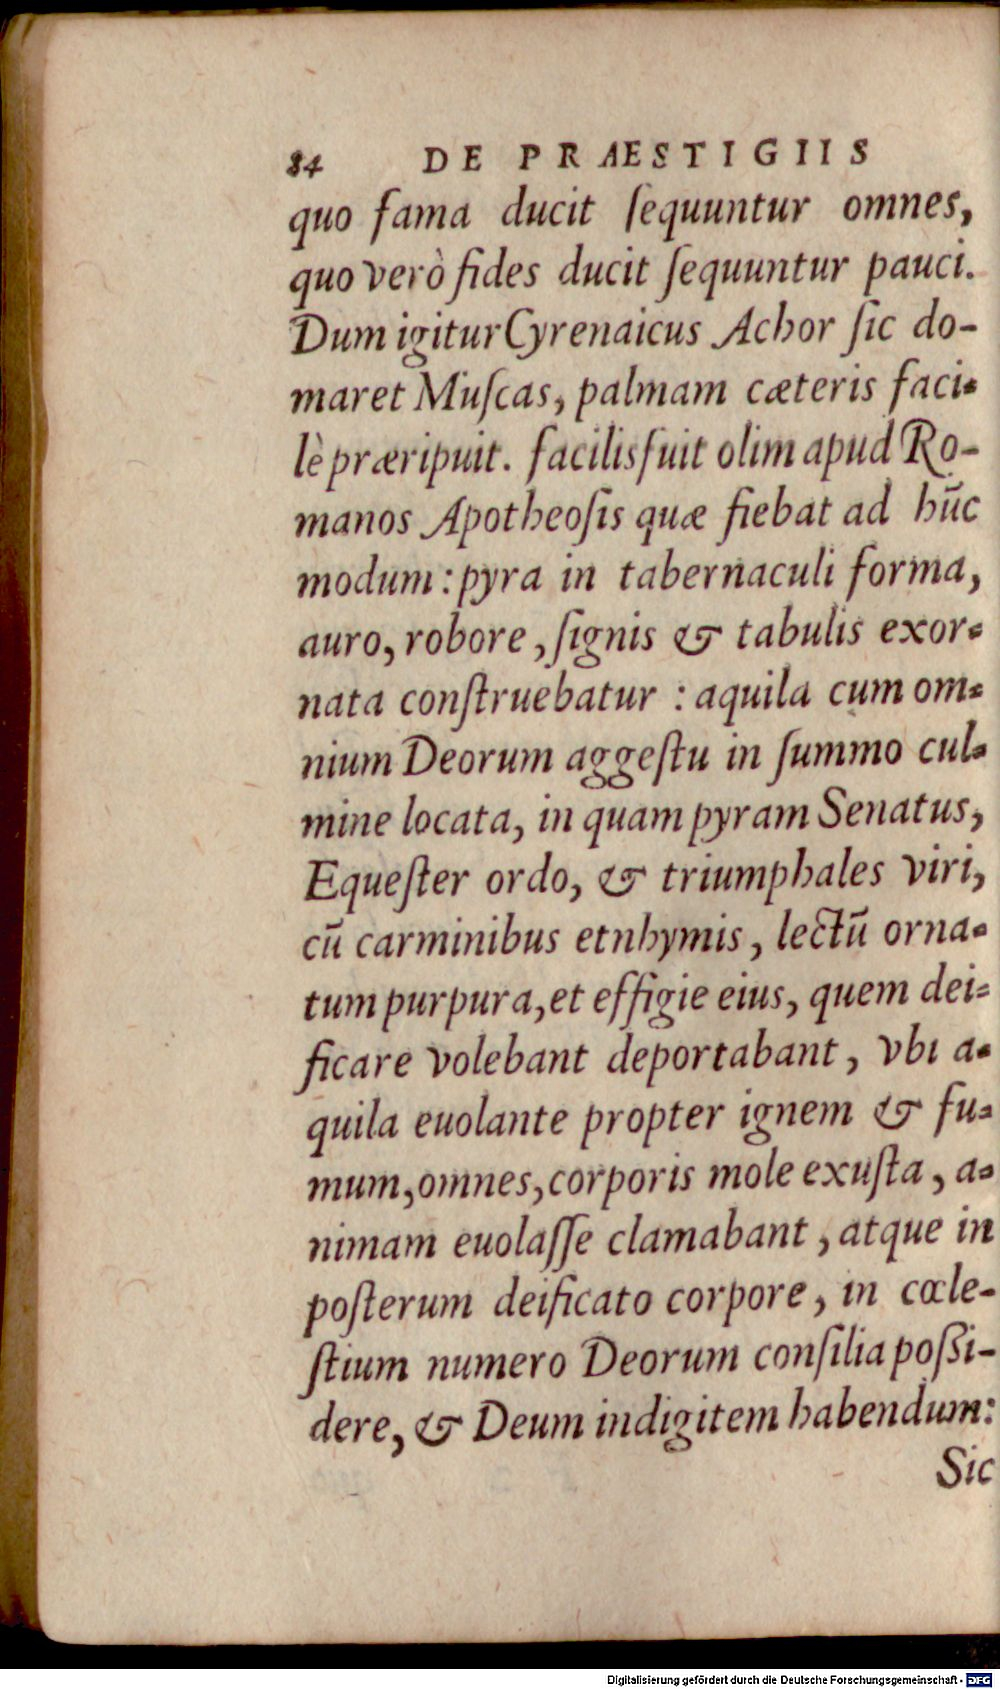 84 DE PRAESTIGIIS
quo fama ducit ſequuntur omnes,
quo verò fides ducit ſequuntur pauci.
Dum igitur Cyrenaicus Achor ſic do-
maret Muſcas, palmam cæteris faci-
lè præripuit. facilis fuit olim apud Ro-
manos Apotheoſis quæ fiebat ad hūc
modum: pyra in tabernaculi forma,
auro, robore, ſignis & tabulis exor-
nata conſtruebatur : aquila cum om-
nium Deorum aggeſtu in ſummo cul-
mine locata, in quam pyram Senatus,
Equeſter ordo, & triumphales viri,
cū carminibus etnhymis, lectū orna-
tum purpura, et effigie eius, quem dei-
ficare volebant deportabant, vbi a-
quila euolante propter ignem & fu-
mum, omnes, corporis mole exuſta, a-
nimam euolaſſe clamabant, atque in
poſterum deificato corpore, in cœle-
ſtium numero Deorum conſilia poßi-
dere, & Deum indigitem habendum:
Sic
Digitalisierung gefördert durch die Deutsche Forschungsgemeinschaft - DFG